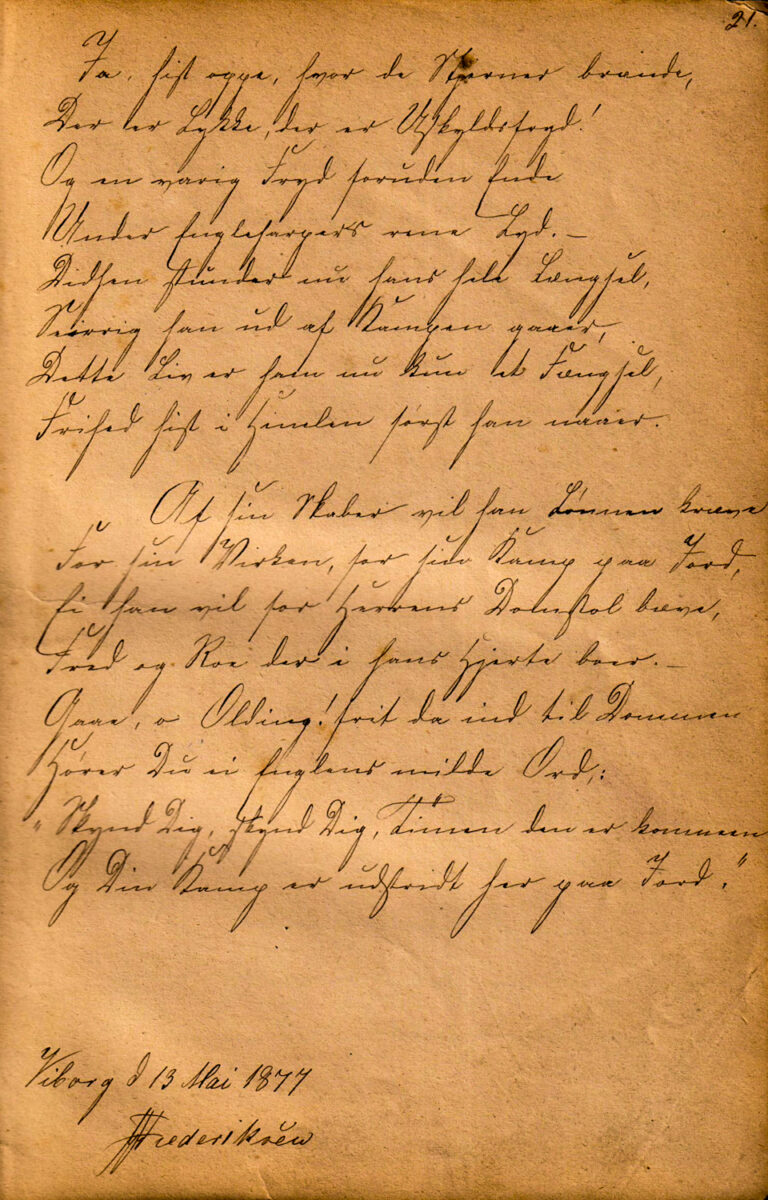 21.
Ja, hist oppe, hvor de Stjerner brænde,
Der er Lykke, der er Uskyldsfryd!
Og en varig Fryd foruden Ende
Under Engleharpers rene Lyd. –
Didhen stunder nu hans hele Længsel,
Seirrig han ud af Kampen gaaer,
Dette Liv er ham nu kun et Fængsel,
Frihed hist i Himlen først han naaer.
Af sin Skaber vil han Lønnen kræve
For sin Virken, for sin Kamp paa Jord,
Ei han vil for Herrens Domstol bæve,
Fred og Roe der i hans Hjerte boer. –
Gaae, o Olding! frit da ind til Dommen
Hører Du ei Englens milde Ord,:
"Skynd Dig, skynd Dig, Timen den er kommen
Og Din Kamp er udstridt her paa Jord."
Viborg d 13 Mai 1877
Frederiksen